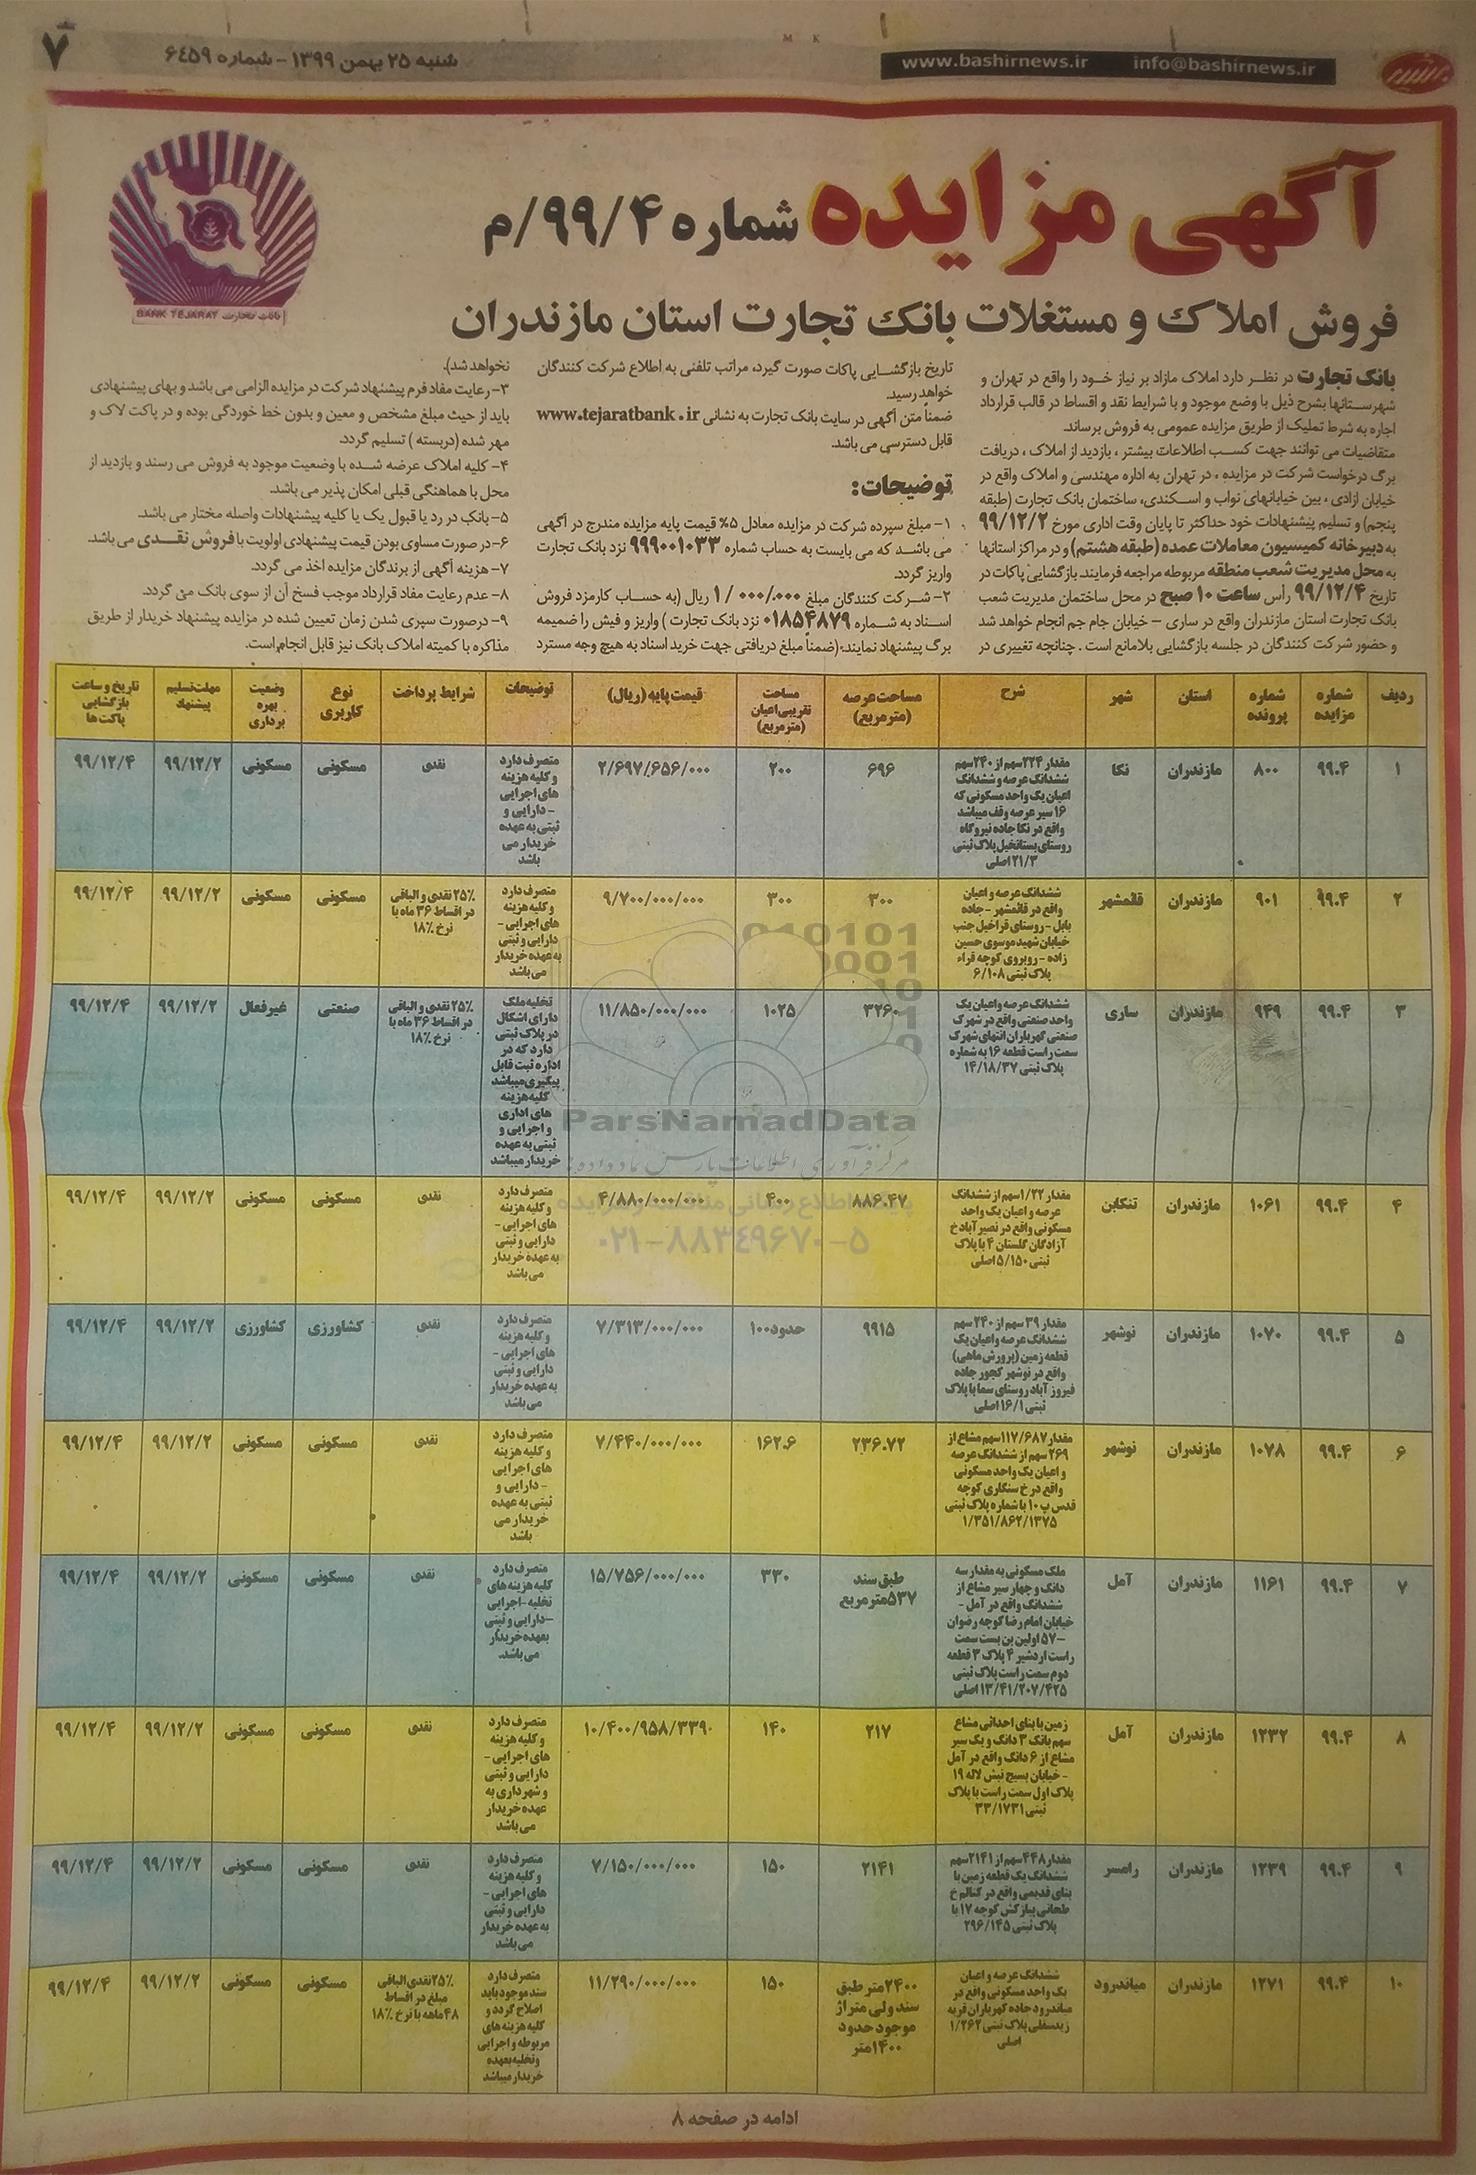 ۷
شنبه ۲۵ بهمن ۱۳۹۹ - شماره ۶۴۵۹
www.bashirnews.ir info@bashirnews.ir
آگهی مزایده شماره ۹۹/۴/م
BANK TEJARAT بانک تجارت
فروش املاک و مستغلات بانک تجارت استان مازندران
بانک تجارت در نظر دارد املاک مازاد بر نیاز خود را واقع در تهران و
شهرستانها بشرح ذیل با وضع موجود و با شرایط نقد و اقساط در قالب قرارداد
اجاره به شرط تملیک از طریق مزایده عمومی به فروش برساند.
متقاضیان می توانند جهت کسب اطلاعات بیشتر ، بازدید از املاک ، دریافت
برگ درخواست شرکت در مزایده ، در تهران به اداره مهندسی و املاک واقع در
خیابان آزادی ، بین خیابانهای نواب و اسکندی، ساختمان بانک تجارت (طبقه
پنجم) و تسلیم پیشنهادات خود حداکثر تا پایان وقت اداری مورخ ۹۹/۱۲/۲
به دبیرخانه کمیسیون معاملات عمده (طبقه هشتم) و در مراکز استانها
به محل مدیریت شعب منطقه مربوطه مراجعه فرمایند. بازگشایی پاکات در
تاریخ ۹۹/۱۲/۴ راس ساعت ۱۰ صبح در محل ساختمان مدیریت شعب
بانک تجارت استان مازندران واقع در ساری – خیابان جام جم انجام خواهد شد
و حضور شرکت کنندگان در جلسه بازگشایی بلامانع است . چنانچه تغییری در
تاریخ بازگشایی پاکات صورت گیرد، مراتب تلفنی به اطلاع شرکت کنندگان
خواهد رسید.
ضمناً متن آگهی در سایت بانک تجارت به نشانی www.tejaratbank.ir
قابل دسترسی می باشد.
توضیحات:
۱- مبلغ سپرده شرکت در مزایده معادل ۵% قیمت پایه مزایده مندرج در آگهی
می باشد که می بایست به حساب شماره ۹۹۹۰۰۱۰۳۳ نزد بانک تجارت
واریز گردد.
۲- شرکت کنندگان مبلغ ۱/۰۰۰/۰۰۰ ریال (به حساب کارمزد فروش
اسناد به شماره ۰۱۸۵۴۸۷۹ نزد بانک تجارت ) واریز و فیش را ضمیمه
برگ پیشنهاد نمایند. (ضمناً مبلغ دریافتی جهت خرید اسناد به هیچ وجه مسترد
نخواهد شد).
۳- رعایت مفاد فرم پیشنهاد شرکت در مزایده الزامی می باشد و بهای پیشنهادی
باید از حیث مبلغ مشخص و معین و بدون خط خوردگی بوده و در پاکت لاک و
مهر شده (دربسته ) تسلیم گردد.
۴- کلیه املاک عرضه شده با وضعیت موجود به فروش می رسند و بازدید از
محل با هماهنگی قبلی امکان پذیر می باشد.
۵- بانک در رد یا قبول یک یا کلیه پیشنهادات واصله مختار می باشد.
۶- در صورت مساوی بودن قیمت پیشنهادی اولویت با فروش نقدی می باشد.
۷- هزینه آگهی از برندگان مزایده اخذ می گردد.
۸- عدم رعایت مفاد قرارداد موجب فسخ آن از سوی بانک می گردد.
۹- درصورت سپری شدن زمان تعیین شده در مزایده پیشنهاد خریدار از طریق
مذاکره با کمیته املاک بانک نیز قابل انجام است.
ردیف شماره مزایده شماره پرونده استان شهر شرح مساحت عرصه (مترمربع) مساحت تقریبی اعیان (مترمربع) قیمت پایه (ریال) توضیحات شرایط پرداخت نوع کاربری وضعیت بهره برداری مهلت تسلیم پیشنهاد تاریخ و ساعت بازگشایی پاکت ها
۱ ۹۹.۴ ۸۰۰ مازندران نکا مقدار ۲۲۴سهم از ۲۴۰سهم ششدانگ عرصه و ششدانگ اعیان یک واحد مسکونی که ۱۶ سیر عرصه وقف میباشد واقع در نکا جاده نیروگاه روستای بستانخیل پلاک ثبتی ۲۱/۳اصلی ۶۹۶ ۲۰۰ ۲/۶۹۷/۶۵۶/۰۰۰ متصرف دارد و کلیه هزینه های اجرایی - دارایی و ثبتی به عهده خریدار می باشد نقدی مسکونی مسکونی ۹۹/۱۲/۲ ۹۹/۱۲/۴
۲ ۹۹.۴ ۹۰۱ مازندران قائمشهر ششدانگ عرصه و اعیان واقع در قائمشهر - جاده بابل - روستای قراخیل جنب خیابان شهید موسوی حسین زاده - روبروی کوچه قراء پلاک ثبتی ۶/۱۰۸ ۳۰۰ ۳۰۰ ۹/۷۰۰/۰۰۰/۰۰۰ متصرف دارد و کلیه هزینه های اجرایی - دارایی و ثبتی به عهده خریدار می باشد ۲۵% نقدی و الباقی در اقساط ۳۶ ماه با نرخ ۱۸% مسکونی مسکونی ۹۹/۱۲/۲ ۹۹/۱۲/۴
۳ ۹۹.۴ ۹۴۹ مازندران ساری ششدانگ عرصه واعیان یک واحد صنعتی واقع در شهرک صنعتی گهرباران انتهای شهرک سمت راست قطعه ۱۶ به شماره پلاک ثبتی ۱۴/۱۸/۳۷ ۳۲۶۰ ۱۰۲۵ ۱۱/۸۵۰/۰۰۰/۰۰۰ تخلیه ملک دارای اشکال در پلاک ثبتی دارد که در اداره ثبت قابل پیگیری میباشد کلیه هزینه های اداری و اجرایی و ثبتی به عهده خریدار میباشد ۲۵% نقدی و الباقی در اقساط ۳۶ ماه با نرخ ۱۸% صنعتی غیرفعال ۹۹/۱۲/۲ ۹۹/۱۲/۴
۴ ۹۹.۴ ۱۰۶۱ مازندران تنکابن مقدار ۱/۲۲سهم از ششدانگ عرصه و اعیان یک واحد مسکونی واقع در نصیر آباد خ آزادگان گلستان ۴ با پلاک ثبتی ۵/۱۵۰اصلی ۸۸۶.۴۷ ۴۰۰ ۴/۸۸۰/۰۰۰/۰۰۰ متصرف دارد و کلیه هزینه های اجرایی - دارایی و ثبتی به عهده خریدار می باشد نقدی مسکونی مسکونی ۹۹/۱۲/۲ ۹۹/۱۲/۴
۵ ۹۹.۴ ۱۰۷۰ مازندران نوشهر مقدار ۳۹ سهم از ۲۴۰ سهم ششدانگ عرصه واعیان یک قطعه زمین (پرورش ماهی) واقع در نوشهر کجور جاده فیروز آباد روستای سما با پلاک ثبتی ۱۶/۱اصلی ۹۹۱۵ حدود۱۰۰ ۷/۳۱۳/۰۰۰/۰۰۰ متصرف دارد و کلیه هزینه های اجرایی - دارایی و ثبتی به عهده خریدار می باشد نقدی کشاورزی کشاورزی ۹۹/۱۲/۲ ۹۹/۱۲/۴
۶ ۹۹.۴ ۱۰۷۸ مازندران نوشهر مقدار ۱۱۷/۶۸۷سهم مشاع از ۲۶۹ سهم از ششدانگ عرصه و اعیان یک واحد مسکونی واقع در خ سنگاری کوچه قدس پ ۱۰ با شماره پلاک ثبتی ۱/۳۵۱/۸۶۲/۱۳۷۵ ۲۳۶.۷۲ ۱۶۲.۶ ۷/۴۴۰/۰۰۰/۰۰۰ متصرف دارد و کلیه هزینه های اجرایی - دارایی و ثبتی به عهده خریدار می باشد نقدی مسکونی مسکونی ۹۹/۱۲/۲ ۹۹/۱۲/۴
۷ ۹۹.۴ ۱۱۶۱ مازندران آمل ملک مسکونی به مقدار سه دانگ و چهار سیر مشاع از ششدانگ واقع در آمل - خیابان امام رضا کوچه رضوان ۵۷- اولین بن بست سمت راست اردشیر ۴ پلاک ۳ قطعه دوم سمت راست پلاک ثبتی ۱۳/۴۱/۲۰۷/۴۲۵اصلی طبق سند ۵۳۷مترمربع ۳۳۰ ۱۵/۷۵۶/۰۰۰/۰۰۰ متصرف دارد کلیه هزینه های تخلیه -اجرایی -دارایی و ثبتی بعهده خریدار می باشد. نقدی مسکونی مسکونی ۹۹/۱۲/۲ ۹۹/۱۲/۴
۸ ۹۹.۴ ۱۲۳۲ مازندران آمل زمین با بنای احداثی مشاع سهم بانک ۳ دانگ و یک سیر مشاع از ۶ دانگ واقع در آمل - خیابان بسیج نبش لاله ۱۹ پلاک اول سمت راست با پلاک ثبتی ۳۳/۱۷۳۱ ۲۱۷ ۱۴۰ ۱۰/۴۰۰/۹۵۸/۳۳۹ متصرف دارد و کلیه هزینه های اجرایی - دارایی و ثبتی و شهرداری به عهده خریدار می باشد نقدی مسکونی مسکونی ۹۹/۱۲/۲ ۹۹/۱۲/۴
۹ ۹۹.۴ ۱۲۳۹ مازندران رامسر مقدار ۴۴۸سهم از ۲۱۴۱سهم ششدانگ یک قطعه زمین با بنای قدیمی واقع در کتالم خ طحانی پیازکش کوچه ۱۷ با پلاک ثبتی ۲۹۶/۱۴۵ ۲۱۴۱ ۱۵۰ ۷/۱۵۰/۰۰۰/۰۰۰ متصرف دارد و کلیه هزینه های اجرایی - دارایی و ثبتی به عهده خریدار می باشد نقدی مسکونی مسکونی ۹۹/۱۲/۲ ۹۹/۱۲/۴
۱۰ ۹۹.۴ ۱۲۷۱ مازندران میاندرود ششدانگ عرصه و اعیان یک واحد مسکونی واقع در میاندرود جاده گهرباران قریه زیدسفلی پلاک ثبتی ۱/۲۶۲ اصلی ۲۴۰۰متر طبق سند ولی متراژ موجود حدود ۱۴۰۰متر ۱۵۰ ۱۱/۲۹۰/۰۰۰/۰۰۰ متصرف دارد سند موجود باید اصلاح گردد و کلیه هزینه های مربوطه و اجرایی و تخلیه بعهده خریدار میباشد ۲۵%نقدی الباقی مبلغ در اقساط ۴۸ماهه با نرخ ۱۸% مسکونی مسکونی ۹۹/۱۲/۲ ۹۹/۱۲/۴
ParsNamadData
مرکز فرآوری اطلاعات پارس نماد داده ها
پایگاه اطلاع رسانی مناقصه و مزایده
۰۲۱-۸۸۳۴۹۶۷۰-۵
ادامه در صفحه ۸